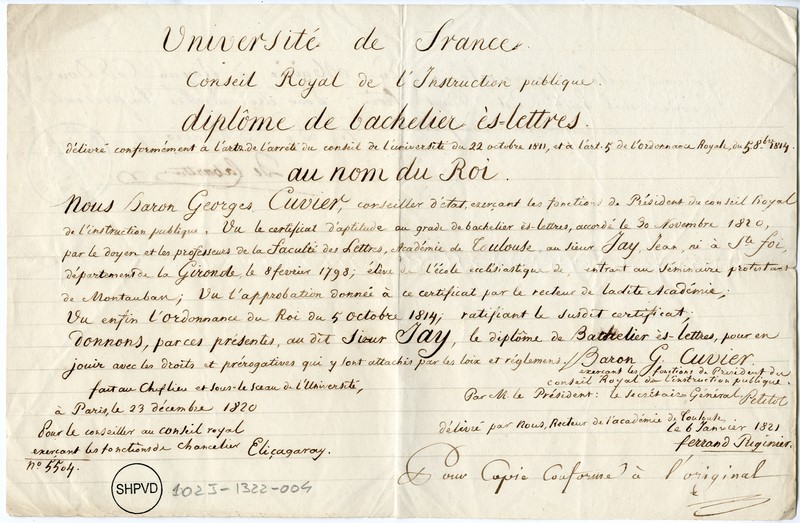 Université de France.
Conseil Royal de l'Instruction publique.
diplôme de bachelier ès-lettres.
délivré conformément à l'art 2 de l'arrêté du conseil de l'université du 22 octobre 1811, et à l'art. 5 de l'ordonnance Royale, du 5 8bre 1814.
au nom du Roi.
Nous Baron Georges Cuvier, conseiller d'état, exerçant les fonctions de Président du conseil Royal
de l'instruction publique. Vu le certificat d'aptitude au grade de bachelier ès-lettres, accordé le 30 Novembre 1820,
par le doyen et les professeurs de la Faculté des Lettres, Académie de Toulouse au sieur Jay, Jean, né à Ste foi,
département de la Gironde, le 8 février 1798; élève de l'école ecclésiastique de, entrant au Séminaire protestant
de Montauban; Vu l'approbation donnée à ce certificat par le recteur de ladite Académie;
Vu enfin l'ordonnance du Roi du 5 octobre 1814; ratifiant le susdit certificat;
donnons, par ces présentes, au dit Sieur Jay, le diplôme de Bachelier ès-lettres, pour en
jouir avec les droits et prérogatives qui y sont attachés par les loix et réglemens / Baron G. Cuvier.
exerçant les fonctions de Président du
conseil Royal de l'instruction publique.
fait au Chef lieu et sous le sceau de l'Université,
à Paris, le 23 décembre 1820
Par M. le Président: le Secrétaire Général Petitot
Pour le conseiller au conseil royal
exerçant les fonctions de chancelier Eliçagaray.
n° 5504.
délivré par Nous, Recteur de l'académie de Toulouse
le 6 Janvier 1821
ferrand Regénier.
Pour Copie Conforme à l'original
SHPVD
102J-1322-004